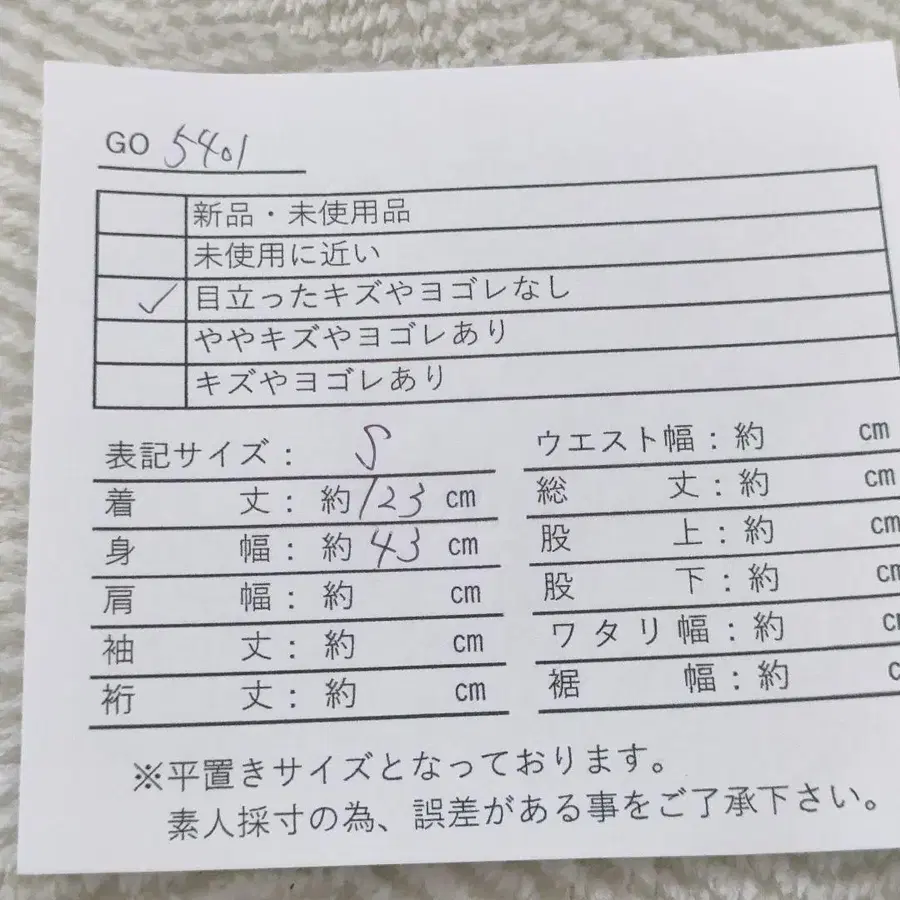 GO 5401
新品・未使用品
未使用に近い
✓ 目立ったキズやヨゴレなし
ややキズやヨゴレあり
キズやヨゴレあり
表記サイズ: S
着丈:約123cm
身幅:約43cm
肩幅:約 cm
袖丈:約 cm
裄丈:約 cm
ウエスト幅:約 cm
総丈:約 cm
股上:約 cm
股下:約 cm
ワタリ幅:約 cm
裾幅:約 c
※平置きサイズとなっております。
素人採寸の為、誤差がある事をご了承下さい。